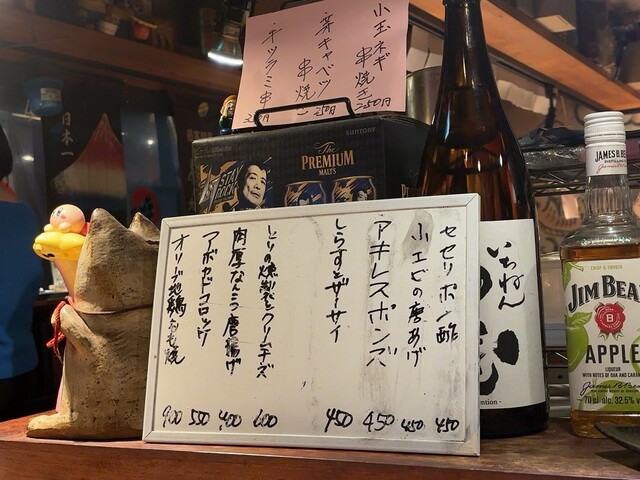 小玉ネギ串焼き 250円
芽キャベツ串焼 250円
日本一
SUNTORY
The
PREMIUM
MALT'S
セセリポン酢 450
小エビの唐あげ 450
アキレスポンズ 450
しらすとザーサイ 450
とりの燻製とクリームチーズ 600
肉厚なんこつ唐揚げ 400
アボカドコロッケ 550
オリーブ地鶏もも焼 900
JAMES B. BEAM
JIM BEAM
APPLE
LIQUEUR
WITH NOTES OF OAK AND CARAMEL
70cl alc. 32.5%